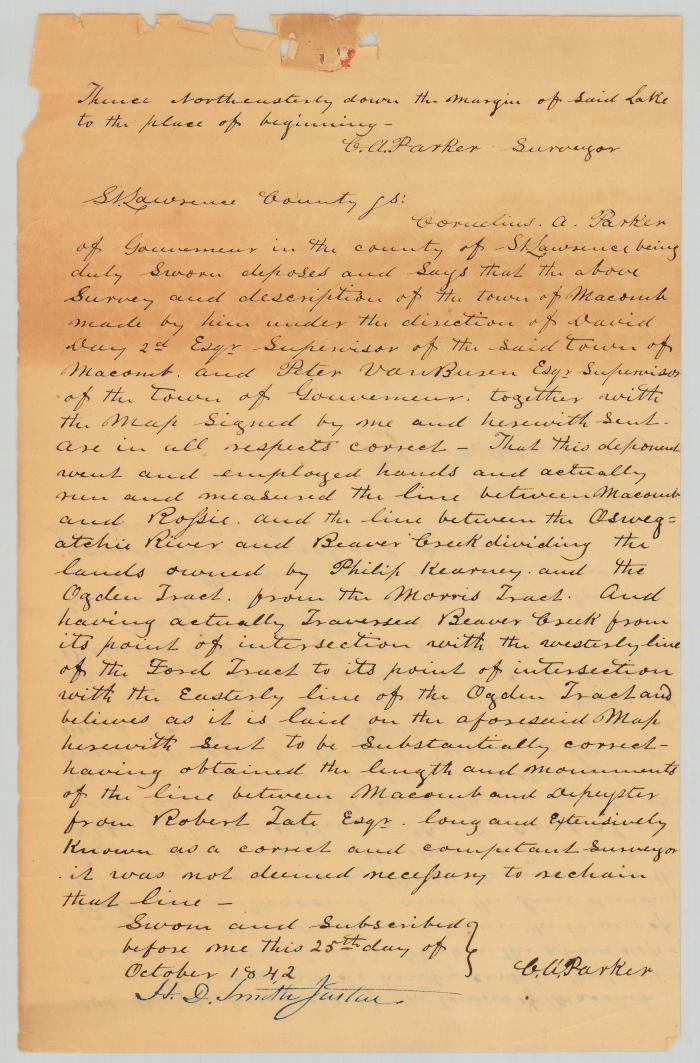 Thence Northeasterly down the margin of said Lake
to the place of beginning -
C.A. Parker Surveyor
St. Lawrence County ss:
Cornelius. A. Parker
of Gouverneur in the county of St Lawrence being
duly Sworn deposes and Says that the above
Survey and description of the town of Macomb
made by him under the direction of David
Day 2d Esqr Supervisor of the said town of
Macomb. and Peter VanBuren Esqr Supervisor
of the town of Gouverneur. together with
the Map Signed by me and herewith Sent.
are in all respects correct - That this deponent
went and employed hands and actually
run and measured the line between Macomb
and Rossie. and the line between the Osweg=
atchie River and Beaver Creek dividing the
lands owned by Philip Kearney. and the
Ogden Tract. from the Morris Tract. And
having actually Traversed Beaver Creek from
its point of intersection with the westerly line
of the Ford Tract to its point of intersection
with the Easterly line of the Ogden Tract and
believes as it is laid on the aforesaid Map
herewith Sent to be Substantially correct -
having obtained the length and monuments
of the line between Macomb and Depeyster
from Robert Tate Esqr. long and Extensively
Known as a correct and competant Surveyor
it was not deemed necessary to rechain
that line -
Sworn and Subscribed
before me this 25th day of
October 1842
C.A. Parker
H. D. Smith Justice